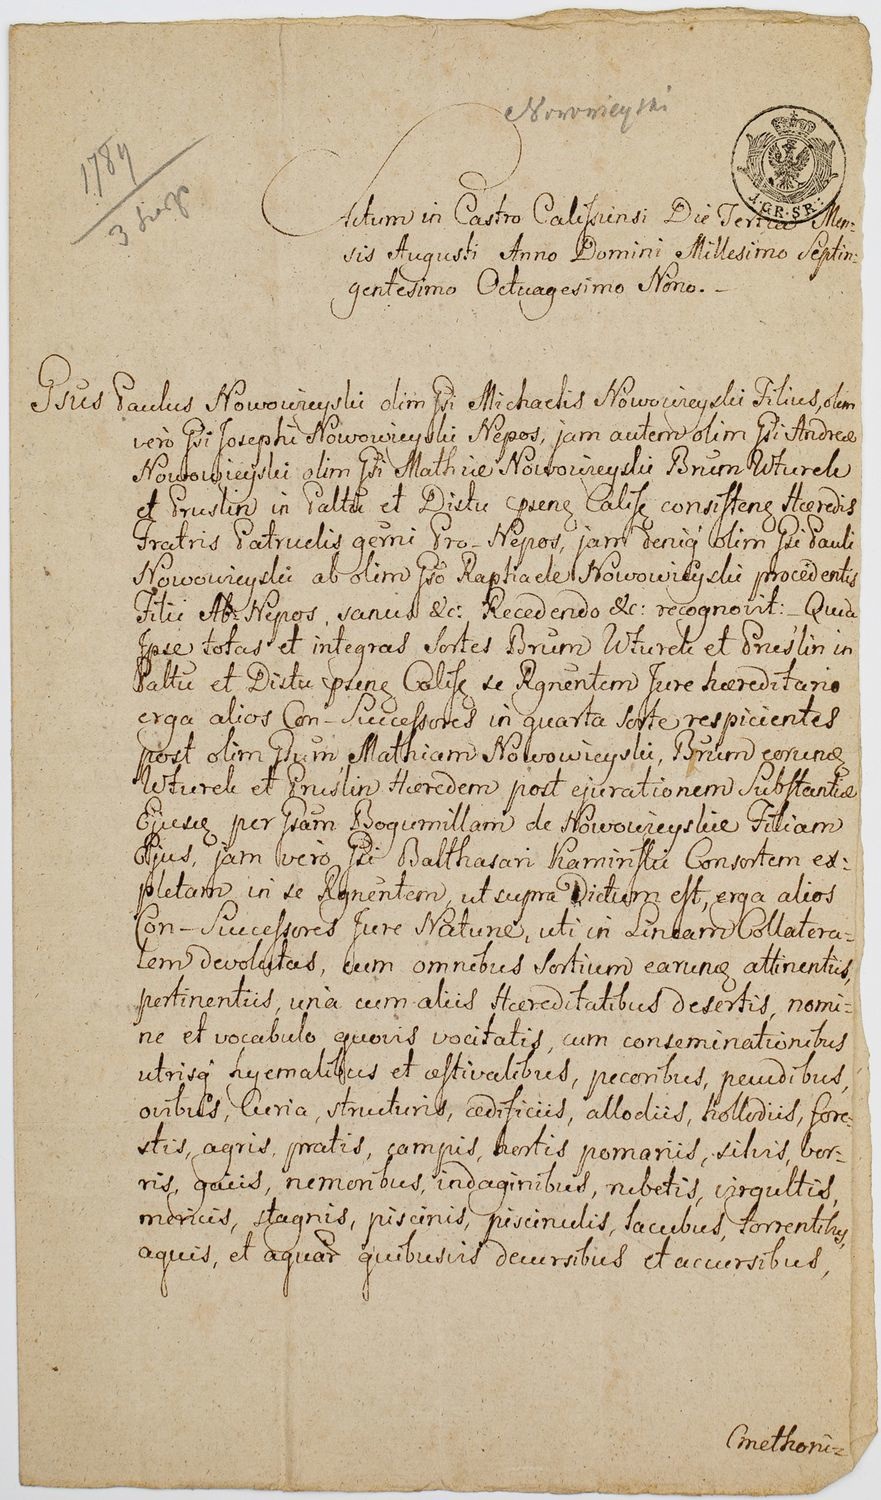 Nowowieyski
1789
3 sierp
1. GR. SR:
Actum in Castro Calissiensi Die Tertia Men-
sis Augusti Anno Domini Millesimo Septin-
gentesimo Octuagesimo Nono. -
Gsus Paulus Nowowieyski olim Gsi Michaelis Nowowieyski Filius, olim
vero Gsi Josephi Nowowieyski Nepos, jam autem olim Gsi Andreæ
Nowowieyski olim Gsi Mathiæ Nowowieyski Brum Wturek
et Pruslin in Palttu et Disttu pseng Calisz consisteng Hæredis
Fratris Patruelis germi Pro-Nepos, jam deniq olim Gsi Pauli
Nowowieyski ab olim Gso Raphaele Nowowieyski procedentis
Filii Ab-Nepos, sanus &c: Recedendo &c: recognovit: - Quia
Ipse totas et integras Sortes Brum Wturek et Pruslin in
Palttu et Disttu pseng Calisz se Rgnentem Jure hæreditario
erga alios Con-Successores in quarta sorte respicientes
post olim Gsum Mathiam Nowowieyski, Brum eorunq
Wturek et Pruslin Hæredem post ejurationem Substantiæ
Ejusq per Gsam Bogumillam de Nowowieyskie Filiam
Ejus, jam vero Gsi Balthasari Kaminski Consortem ex-
pletam in se Rgnentem, ut supra Dictum est, erga alios
Con-Successores Jure Naturæ, uti in Lineam Collatera-
lem devolutas, cum omnibus Sortium earunq attinentiis,
pertinentiis, una cum aliis Hæreditatibus desertis, nomi-
ne et vocabulo quovis vocitatis, cum conseminationibus
utrisq hyemalibus et æstivalibus, pecoribus, pecudibus,
ovibus, Curia, structuris, ædificiis, allodiis, hollodiis, fore-
stis, agris, pratis, campis, hortis pomariis, silvis, bor-
ris, gaiis, nemoribus, indaginibus, rubetis, virgultis,
mericis, stagnis, piscinis, piscinulis, lacubus, torrentibus,
aquis, et aquar quibusvis decursibus et accursibus,
Cmethoni-